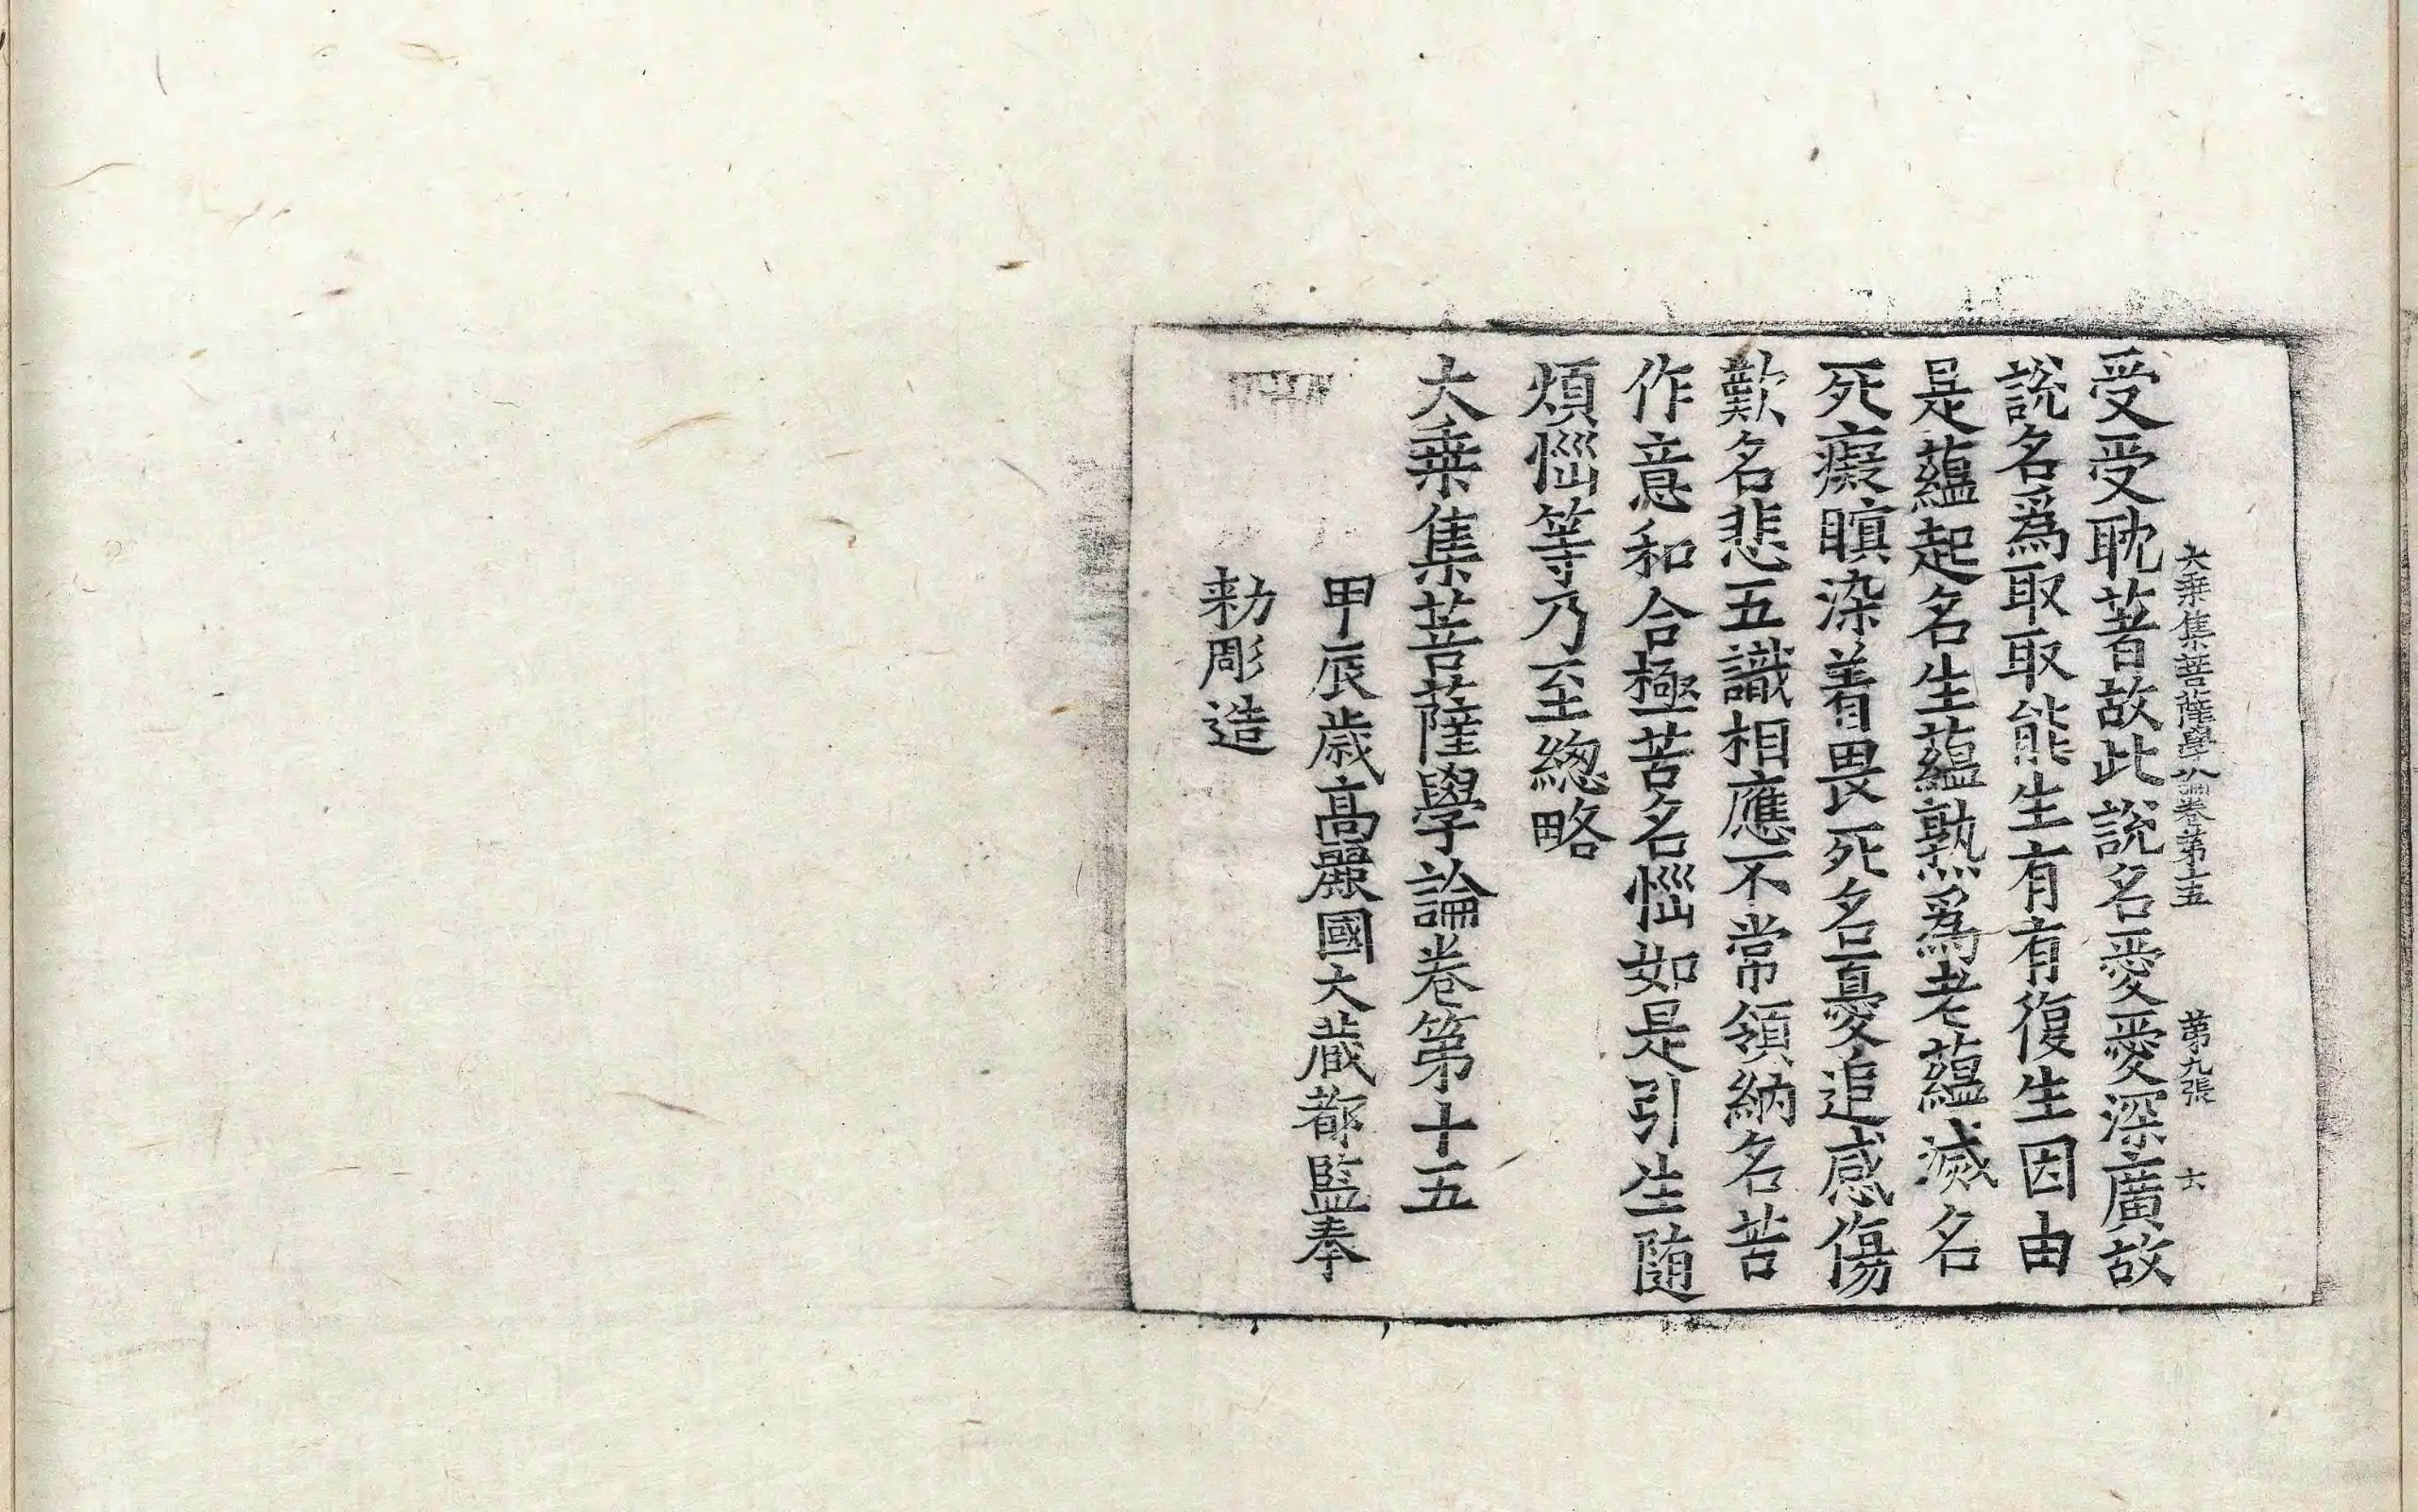 大乗集菩薩學論卷第十五 第九張 六
受受耽著故此說名愛愛深廣故
說名爲取取能生有有復生因由
是蘊起名生蘊熟爲老蘊滅名
死癡瞋染着畏死名憂追感傷
歎名悲五識相應不常領納名苦
作意和合極苦名惱如是引生随
煩惱等乃至緫略
大乗集菩薩學論卷第十五
甲辰歲高麗國大蔵都監奉
勑彫造